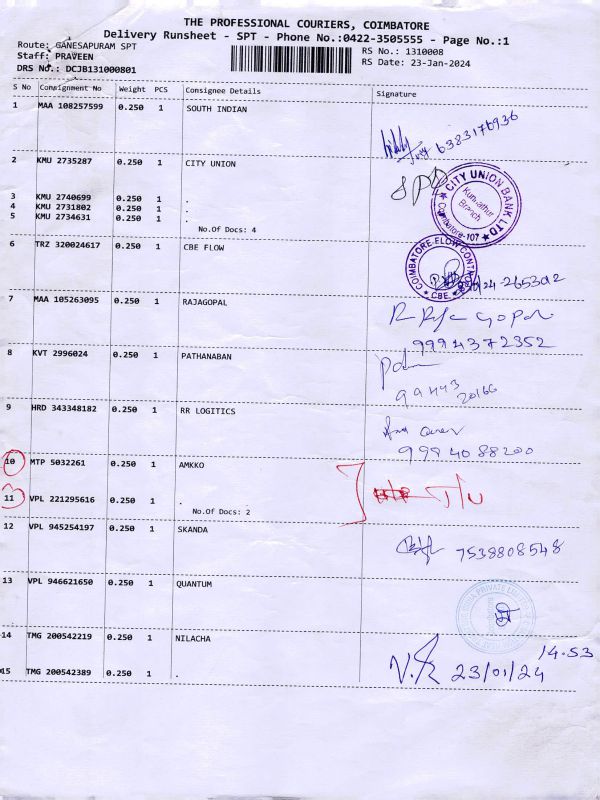 THE PROFESSIONAL COURIERS, COIMBATORE
Delivery Runsheet - SPT - Phone No.:0422-3505555 - Page No.:1
Route: GANESAPURAM SPT
RS No.: 1310008
Staff: PRAVEEN
RS Date: 23-Jan-2024
DRS No.: DCJB131000801
S No Consignment No Weight PCS Consignee Details Signature
1 MAA 108257599 0.250 1 SOUTH INDIAN
6383176936
2 KMU 2735287 0.250 1 CITY UNION
CITY UNION BANK LTD
Kurumbur Branch
Coimbatore-107
3 KMU 2740699 0.250 1 .
4 KMU 2731802 0.250 1 .
5 KMU 2734631 0.250 1 .
No.Of Docs: 4
6 TRZ 320024617 0.250 1 CBE FLOW
COIMBATORE FLOW
CBE
265302
7 MAA 105263095 0.250 1 RAJAGOPAL
R Raja Gopal
9994372352
8 KVT 2996024 0.250 1 PATHANABAN
99443
20166
9 HRD 343348182 0.250 1 RR LOGITICS
9994088200
10 MTP 5032261 0.250 1 AMKKO
11 VPL 221295616 0.250 1 .
No.Of Docs: 2
12 VPL 945254197 0.250 1 SKANDA
7538808548
13 VPL 946621650 0.250 1 QUANTUM
14 TMG 200542219 0.250 1 NILACHA
14.53
23/01/24
15 TMG 200542389 0.250 1 .